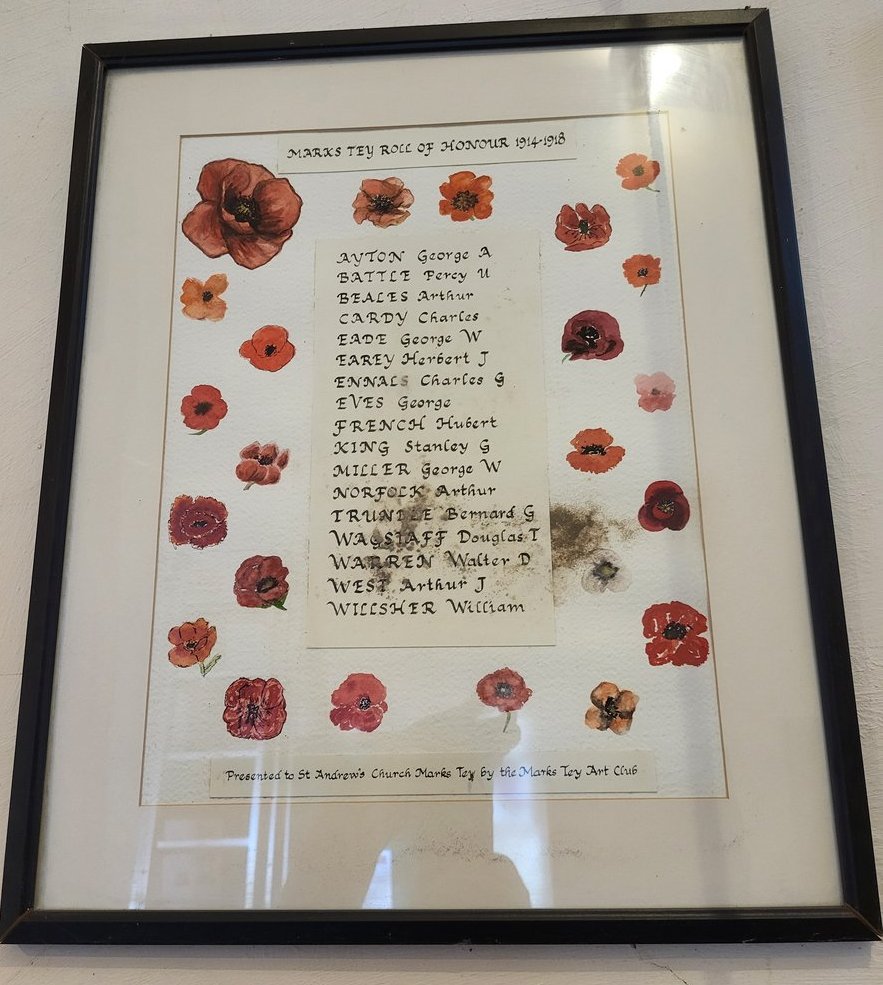 MARKS TEY ROLL OF HONOUR 1914-1918
AYTON George A
BATTLE Percy U
BEALES Arthur
CARDY Charles
EADE George W
EAREY Herbert J
ENNALS Charles G
EVES George
FRENCH Hubert
KING Stanley G
MILLER George W
NORFOLK Arthur
TRUNDLE Bernard G
WAGSTAFF Douglas T
WARREN Walter D
WEST Arthur J
WILLSHER William
Presented to St Andrew's Church Marks Tey by the Marks Tey Art Club